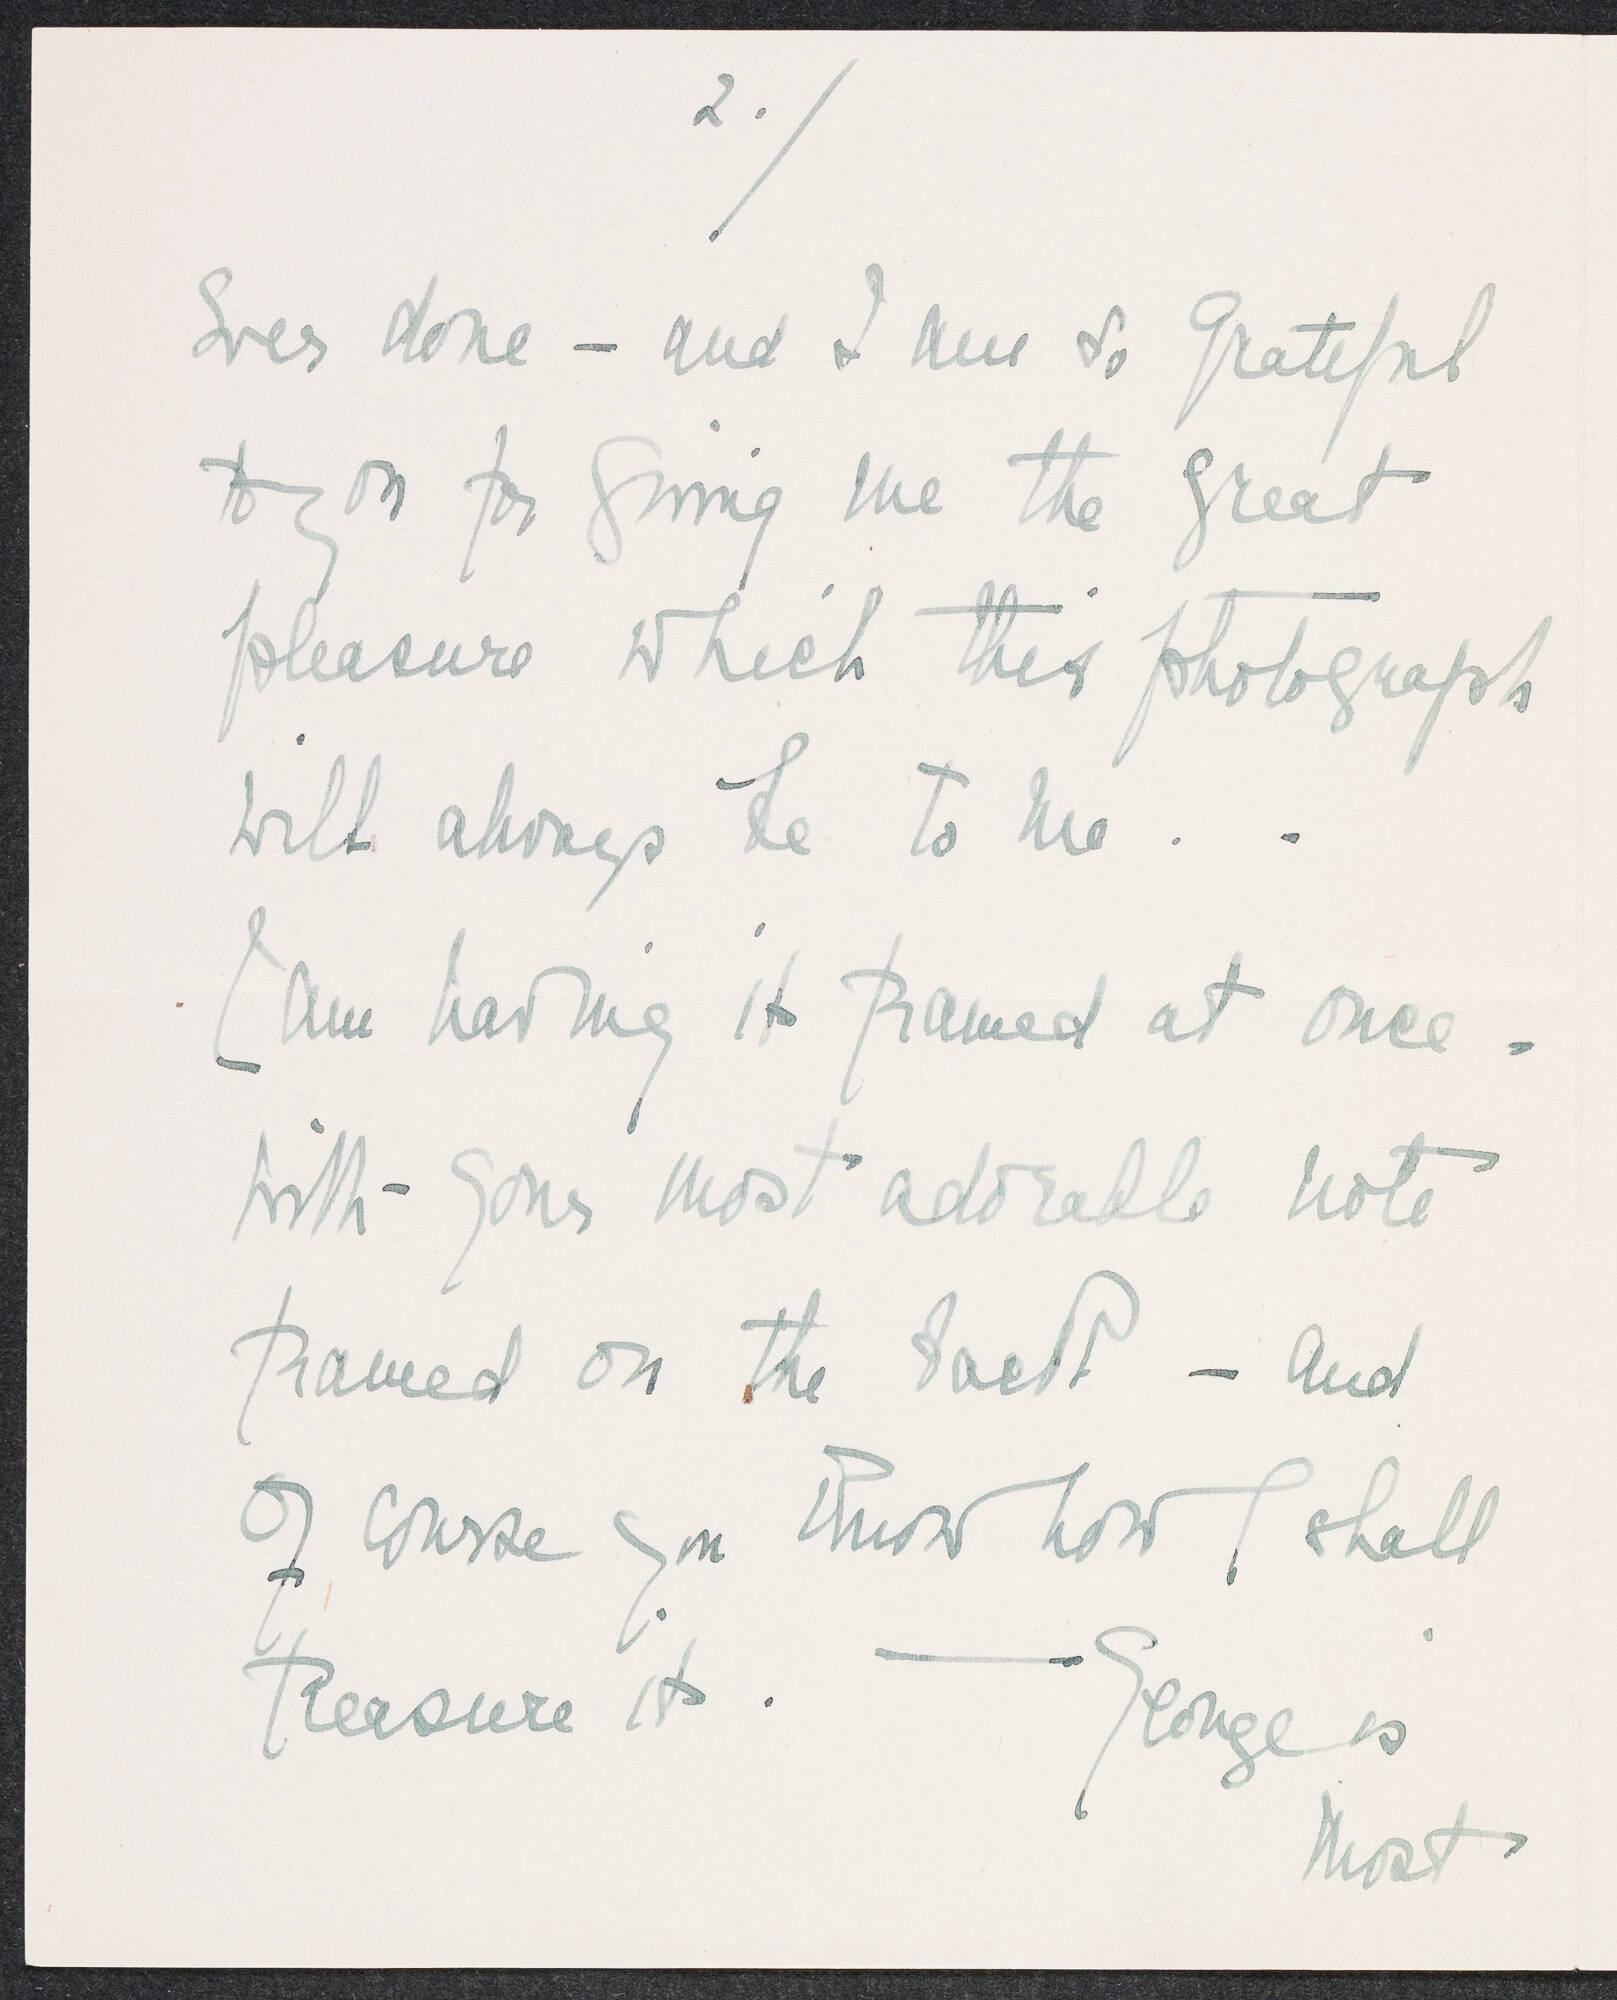 2./
Ever done - and I am so grateful
to you for giving me the great
pleasure which this photograph
will always be to me . -
I am having it framed at once -
with - your most adorable note
framed on the back - and
of course you know how I shall
treasure it . — George is
most